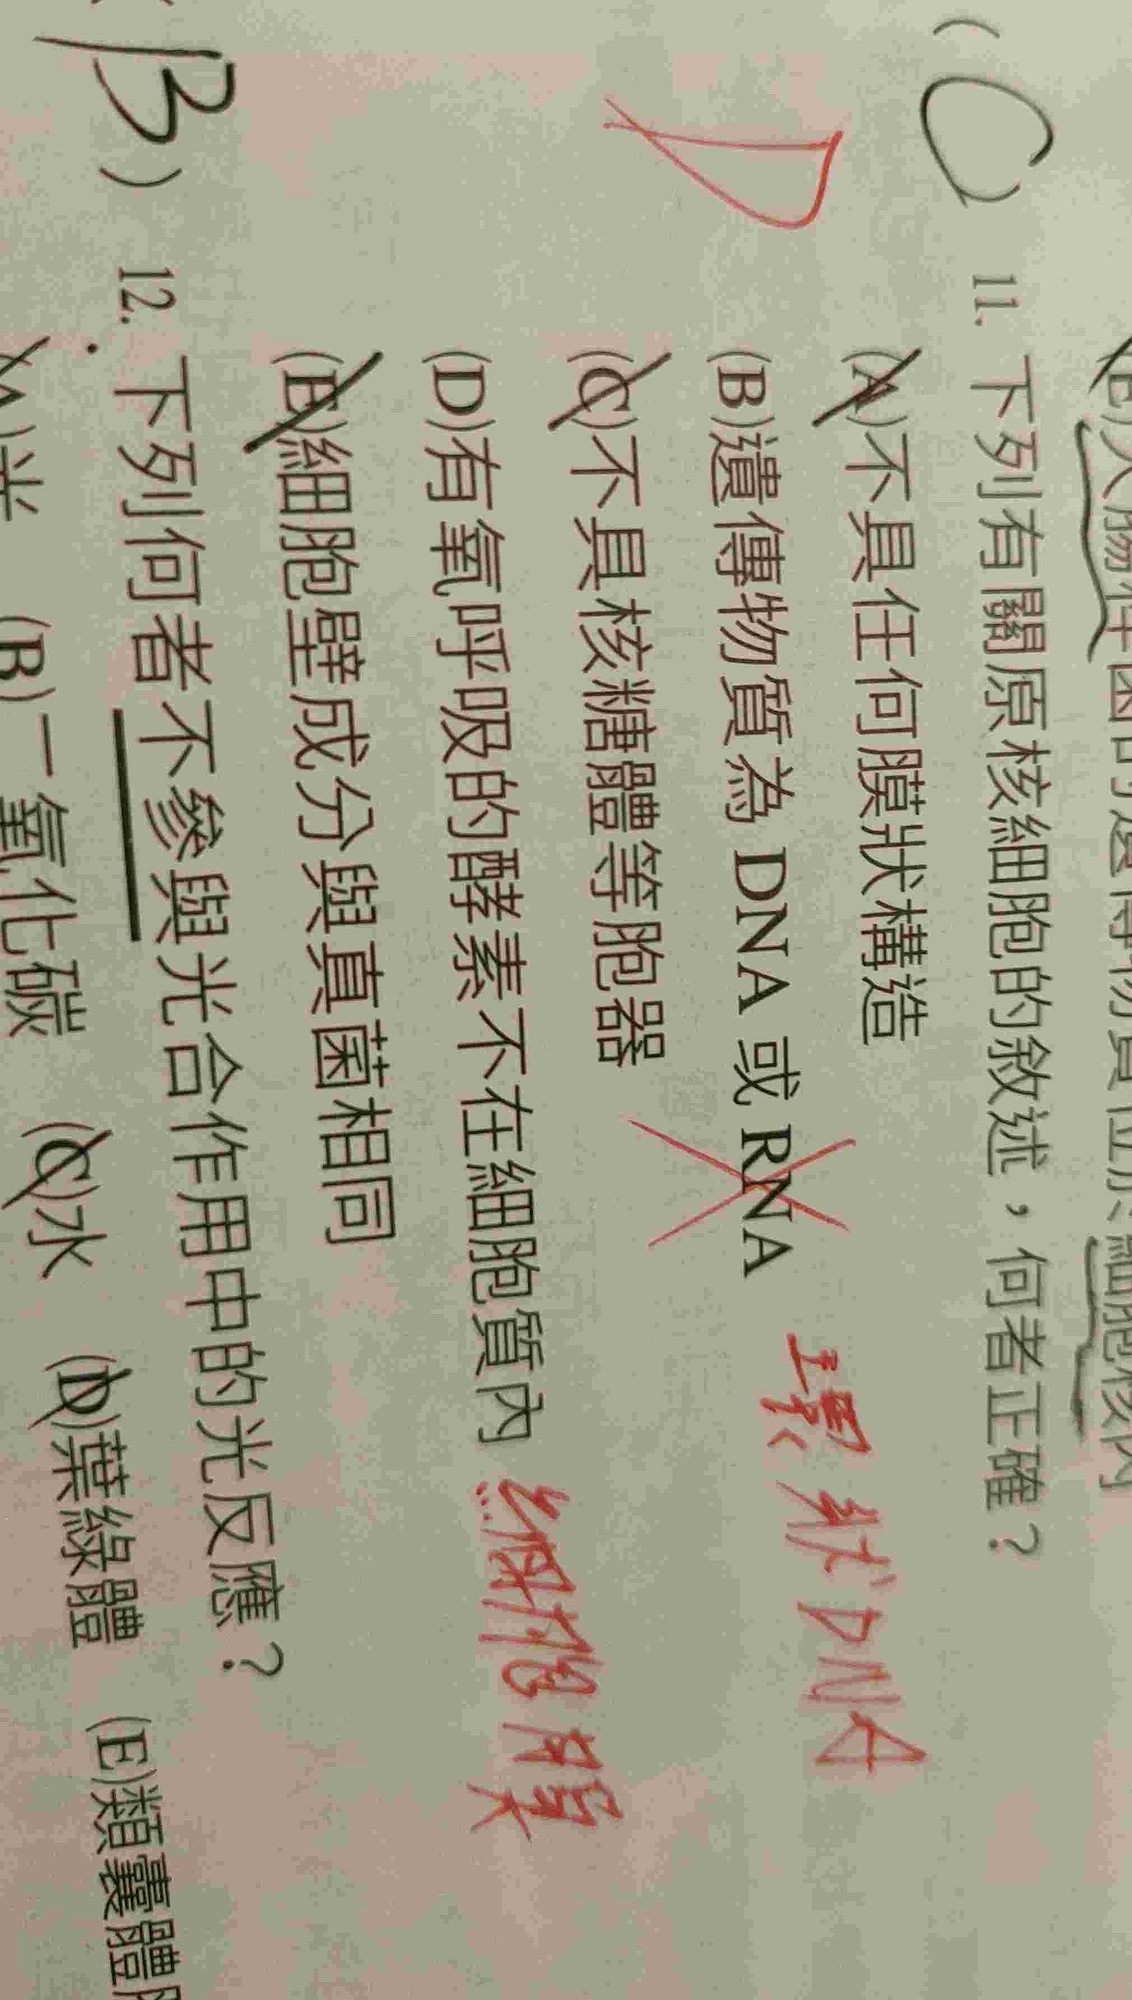 (E)大腸桿菌的遺傳物質位於細胞核內
(C) 11. 下列有關原核細胞的敘述，何者正確？
D
(A)不具任何膜狀構造
(B)遺傳物質為 DNA 或 RNA 環狀DNA
(C)不具核糖體等胞器
(D)有氧呼吸的酵素不在細胞質內 細胞膜
(E)細胞壁成分與真菌相同
(B) 12. 下列何者不參與光合作用中的光反應？
(A)光 (B)二氧化碳 (C)水 (D)葉綠體 (E)類囊體